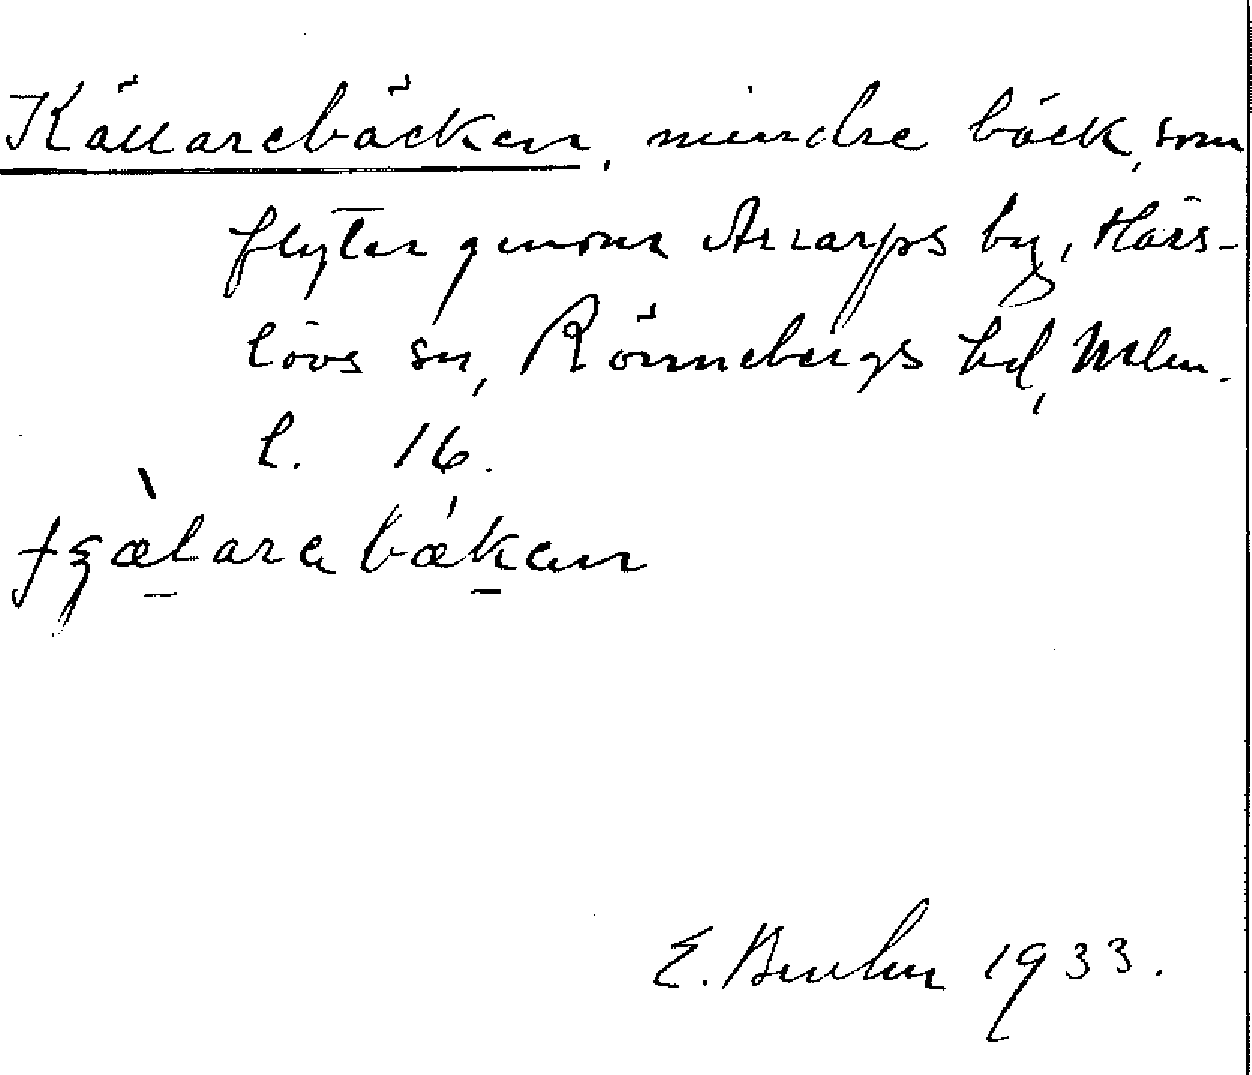 Källarebäcken, mindre bäck, som
flyter genom Arrarps by, Härs-
lövs sn, Rönnebergs hd, Mlm.
l. 16.
E. Bruhn 1933.